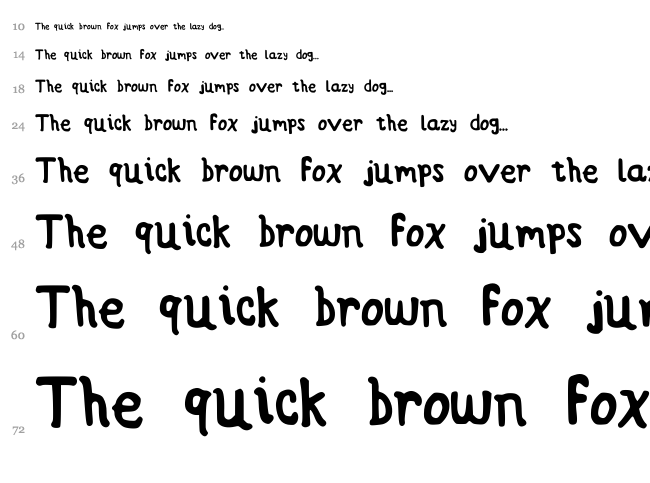 10 The quick brown fox jumps over the lazy dog...
14 The quick brown fox jumps over the lazy dog...
18 The quick brown fox jumps over the lazy dog...
24 The quick brown fox jumps over the lazy dog...
36 The quick brown fox jumps over the la
48 The quick brown fox jumps ov
60 The quick brown fox jur
72 The quick brown fox